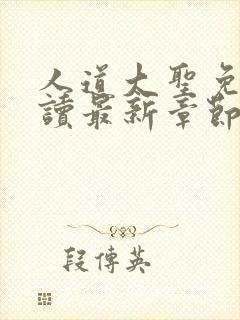 人道大聖免
讀最新章節
段傳英